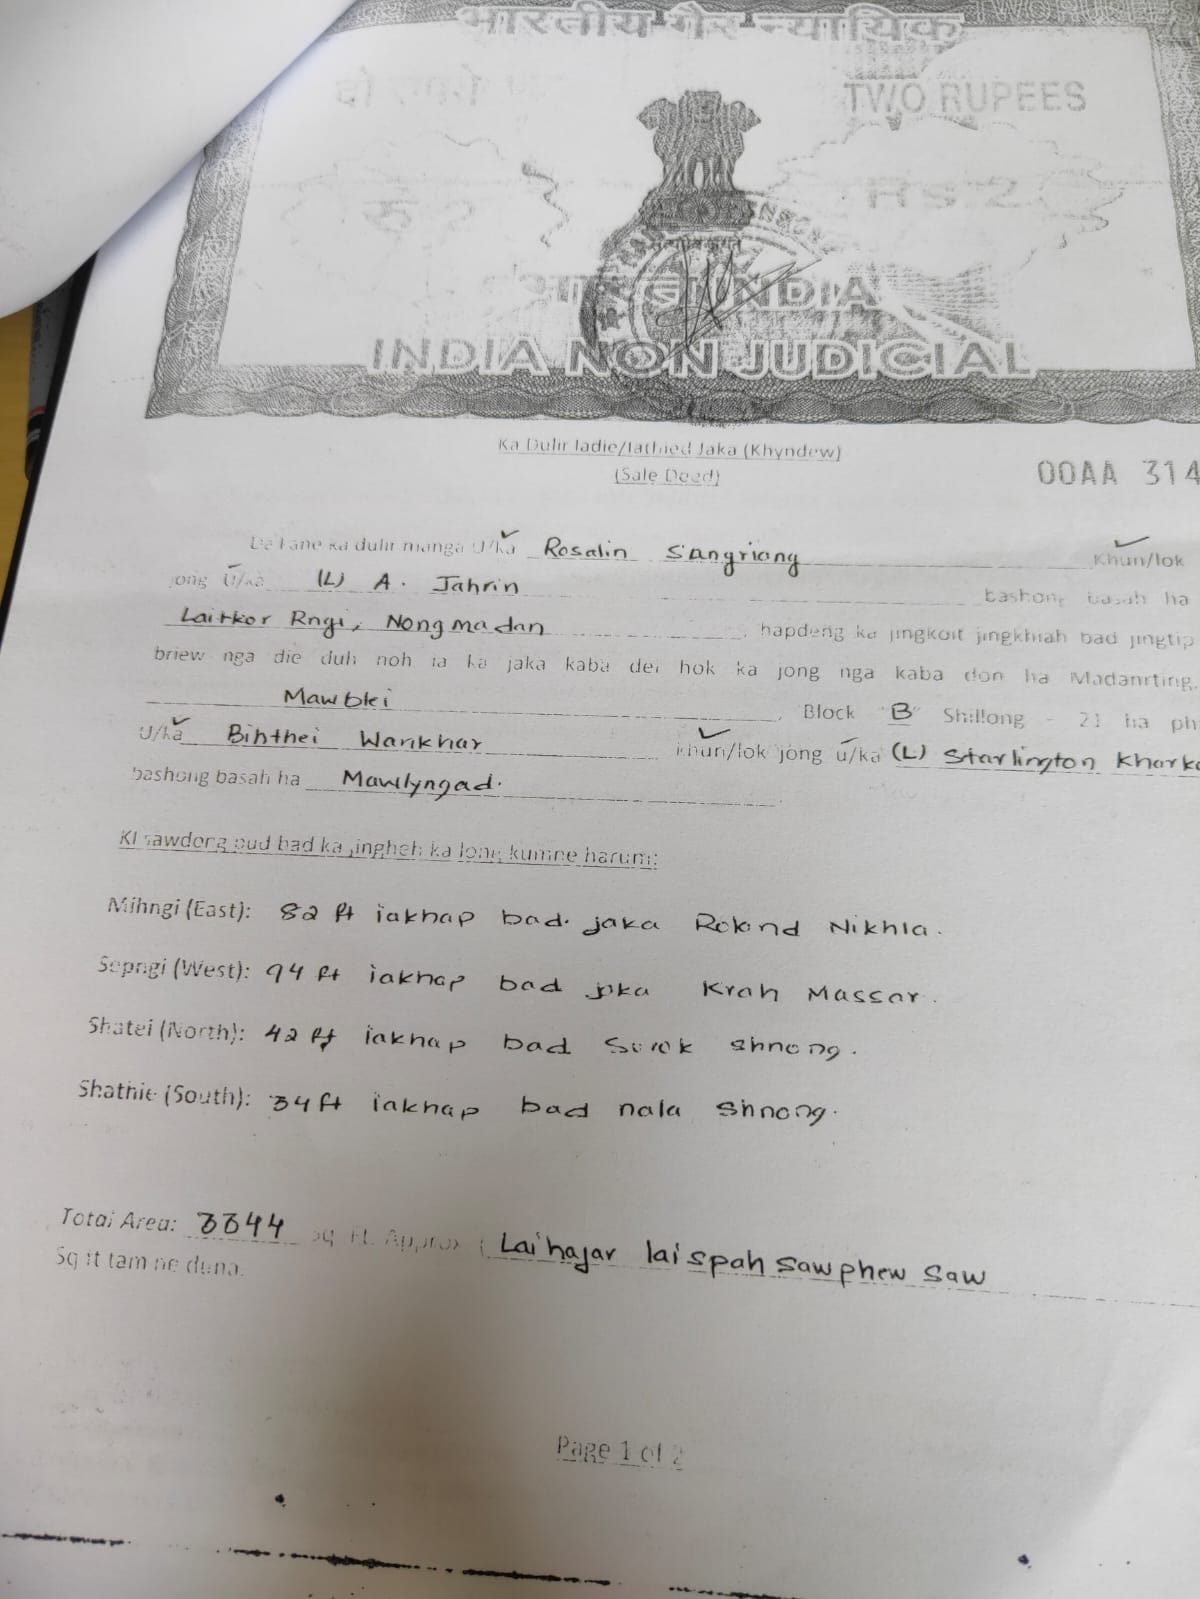 भारतीय गैर न्यायिक
TWO RUPEES
दो रुपये
TWO RUPEES
रु 2
Rs 2
सत्यमेव जयते
INDIA
INDIA NON JUDICIAL
Ka Dulir Iadie/Iathied Jaka (Khyndew)
(Sale Deed)
00AA 314
Da kane ka dulir mànga U/ka Rosalin Sangriang Khun/lok
jong U/ka (L) A. Jahrin bashong basah ha
Laitkor Rngi, Nongmadan hapdeng ka jingkoit jingkhiah bad jingtip
briew nga die duh noh ia ka jaka kaba dei hok ka jong nga kaba don ha Madanrting,
Mawbki, Block "B" Shillong - 21 ha
U/ka Bihthei Wankhar khun/lok jong u/ka (L) Starlington
bashong basah ha Mawlyngad.
Ki sawdong pud bad ka jingheh ka long kumne harum:
Mihngi (East): 82 ft iakhap bad. jaka Roland Nikhla.
Sepngi (West): 94 ft iakhap bad jaka Krah Massar.
Shatei (North): 42 ft iakhap bad Surok shnong.
Shathie (South): 34 ft iakhap bad nala Shnong.
Total Area: 3344 Sq Ft. Approx ( Lai hajar laispah sawphew saw
Sq ft tam ne duna.
Page 1 of 2